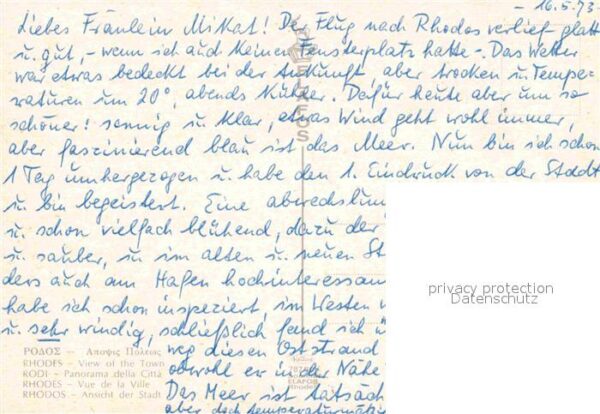 - 16.5.73 -
Liebes Fräulein Mikat! Der Flug nach Rhodos verlief glatt
u. gut, - wenn ich auch keinen Fensterplatz hatte -. Das Wetter
war etwas bedeckt bei der Ankunft, aber trocken u. Tempe-
raturen um 20°, abends kühler. Dafür heute aber um so
schöner! sonnig u. klar, etwas Wind geht wohl immer,
aber faszinierend blau ist das Meer. Nun bin ich schon
1 Tag umhergezogen u. habe den 1. Eindruck von der Stadt
u. bin begeistert. Eine abwechslun
u. schon vielfach blühend, dazu der
u. sauber, u. im alten u. neuen St
ders auch am Hafen hochinteressan
habe ich schon inspeziert, im Westen
u. sehr windig, schließlich fand ich
weg diesen Oststrand
obwohl er in der Nähe
Das Meer ist tatsäch
aber doch temperaturmä
privacy protection
Datenschutz
ΡΟΔΟΣ — Αποψις Πόλεως
RHODES — View of the Town
RODI — Panorama della Città
RHODES — Vue de la Ville
RHODOS — Ansicht der Stadt